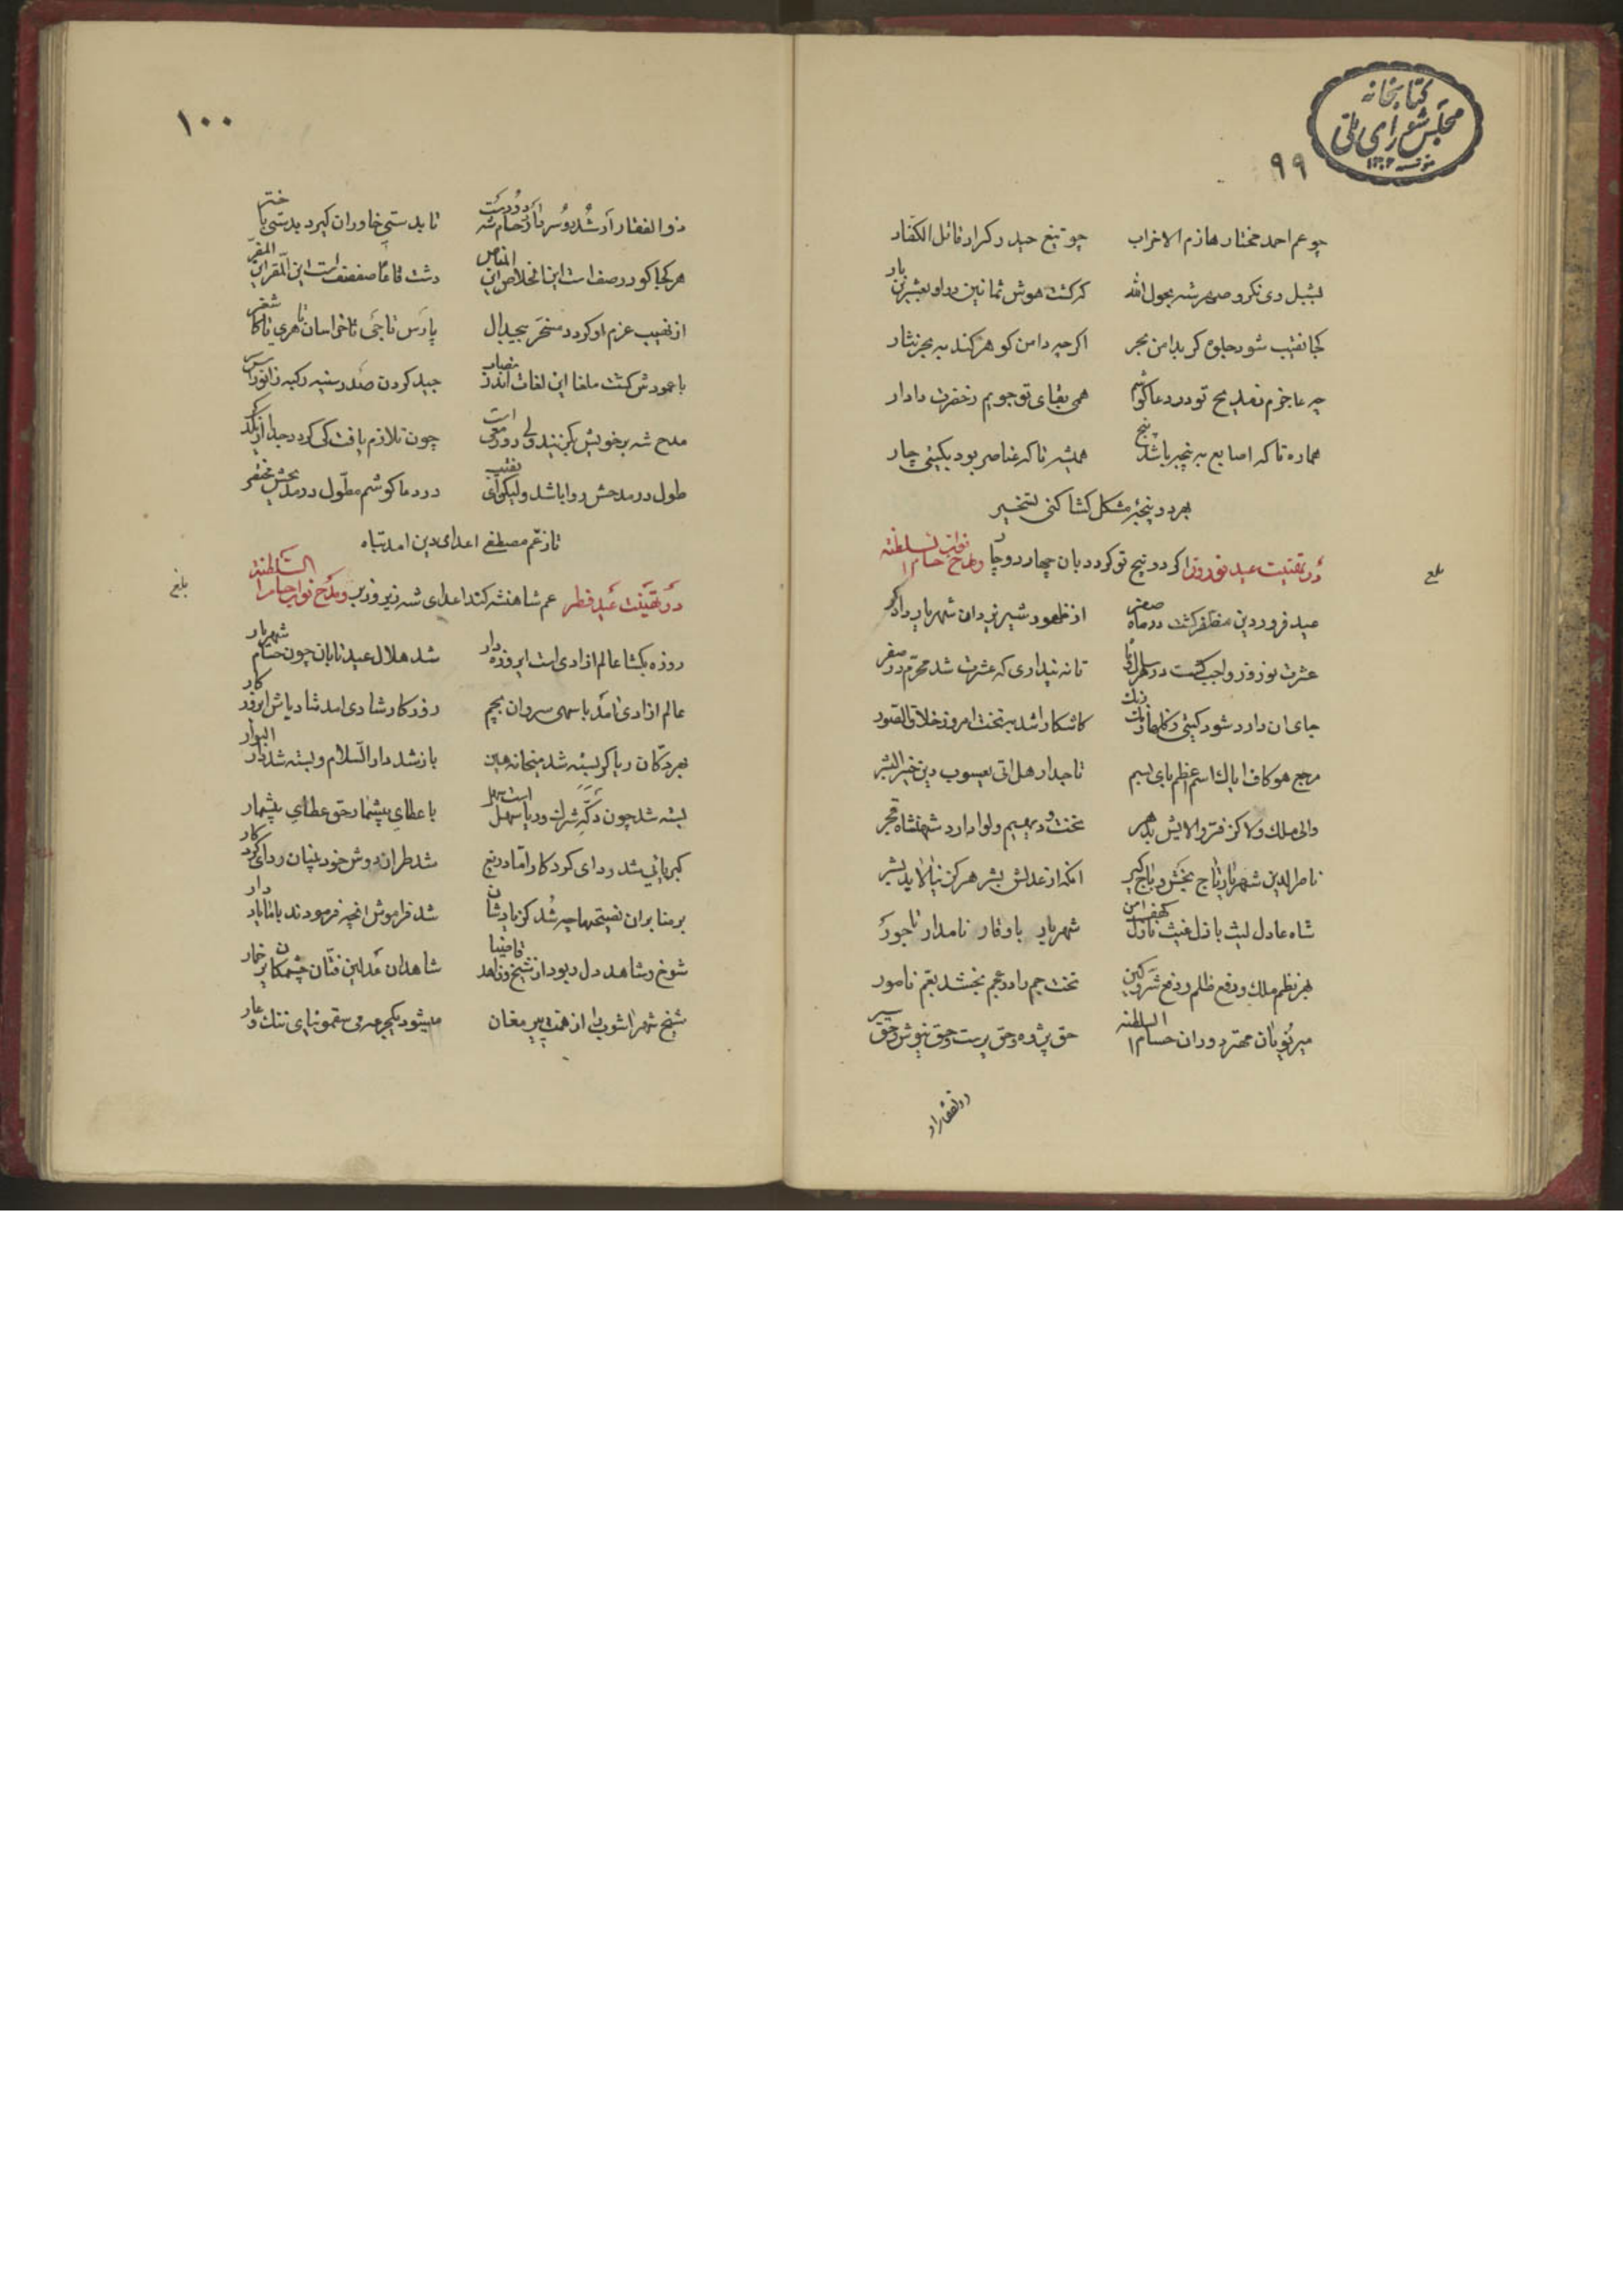 کتابخانه
مجلس شورای ملی
۹۹
چو عم احمد مختار هازم الاحزاب چو تیغ حیدر کرار قاتل الکفار
کجا نقیب شود جلوه کر بدامن بحر اکرچه دامن کوهر کند به بحر نثار
چه عاجزم ز مدیح تو در دعا کوشم همی بقای تو جویم ز حضرت دادار
هماره تا که اصابع به پنجه باشد پنج همیشه تا که عناصر بود بکیتی چار
بهر دو پنجهٔ مشکل کشا کنی تسخیر
در تهنیت عید نوروز اکر دو پنج تو کردد بان چهار دوچار و مدح نواب حسام السلطنه
بلغ
عید فروردین مظفر کشت در ماه صفر از ظهور شیر یزدان شهریار دادکر
عشرت نوروز واجب کشت در تا نه پنداری که عشرت شد محرم در صفر
جای ان دارد شود کیتی کاشکارا شد به تخت امروز خلاق الصور
تاجدار هل اتی یعسوب دین خیر البشر
والی ملک ولا کز فر والایش بدهر تخت و دیهیم و لوا دارد شهنشاه قجر
ناصر الدین شهریار تاج بخش و باج کیر انکه از عدلش بشر هرکز نیالاید بشر
شاه عادل لیث باذل غیث نازل کهف امن شهریار باوقار نامدار تاجور
بهر نظم ملک و دفع ظلم و رفع شر و کین تخت جم را در عجم بخشد بعم نامور
میر نویان مهتر دوران حسام السلطنه حق پژوه و حق پرست و حق نیوش و حق سیر
ذوالفقار ار
۱۰۰
ذوالفقار ار شد دو سر تا بد ستی خاوران کیرد بدستی باختر
هر کجا کو در صف است این الخلاص این المناص دشت قاعا صفصف است این المقر این المفر
از نهیب عزم او کردد مسخر بیجدال پارس تا جی تا خراسان تا هری تا کاشغر
با عمودش کشت ملغا این لغات اندر مصاف جید کردن صدر سینه رکبه زانو راس سر
مدح شه بر خویش چون تلازم یافت کی کردد جدا از یکدکر
طول در مدحش روا باشد ولیک ای نقیب در دعا کوشم مطول در مدیحش مختصر
تا ز عم مصطفی اعدای دین امد تباه
در تهنیت عید فطر عم شاهنشه کند اعدای شه زیر و زبر و مدح نواب حسام السلطنه
بلغ
روزه بکشا عالم ازادی است ای روزه دار شد هلال عید تابان چون حسام شهریار
عالم ازادی امد با سهی سروان بچم روزکار شادی امد شاد باش ای روزکار
بهر دکان ریا کر بسته شد میخانه بین باز شد دار السلام و بسته شد دار البوار
بسته شد چون دکه با عطای بیشمار حق عطای بیشمار
کبریائی شد ردای کردکار اما دریغ شد طراز دوش خود بینان ردای کردکار
بر منابر ان نصیحتها چه شد کز یادشان شد فراموش انچه فرمودند با ما یاد دار
شوخ و شاهد دل ربود از شیخ و زاهد قاضیا شاهدان عدلین فتان چشمکان پر خمار
شیخ شهر اشوب را از همت پیر مغان میشود یکجرعه می سقمونیای ننک و عار